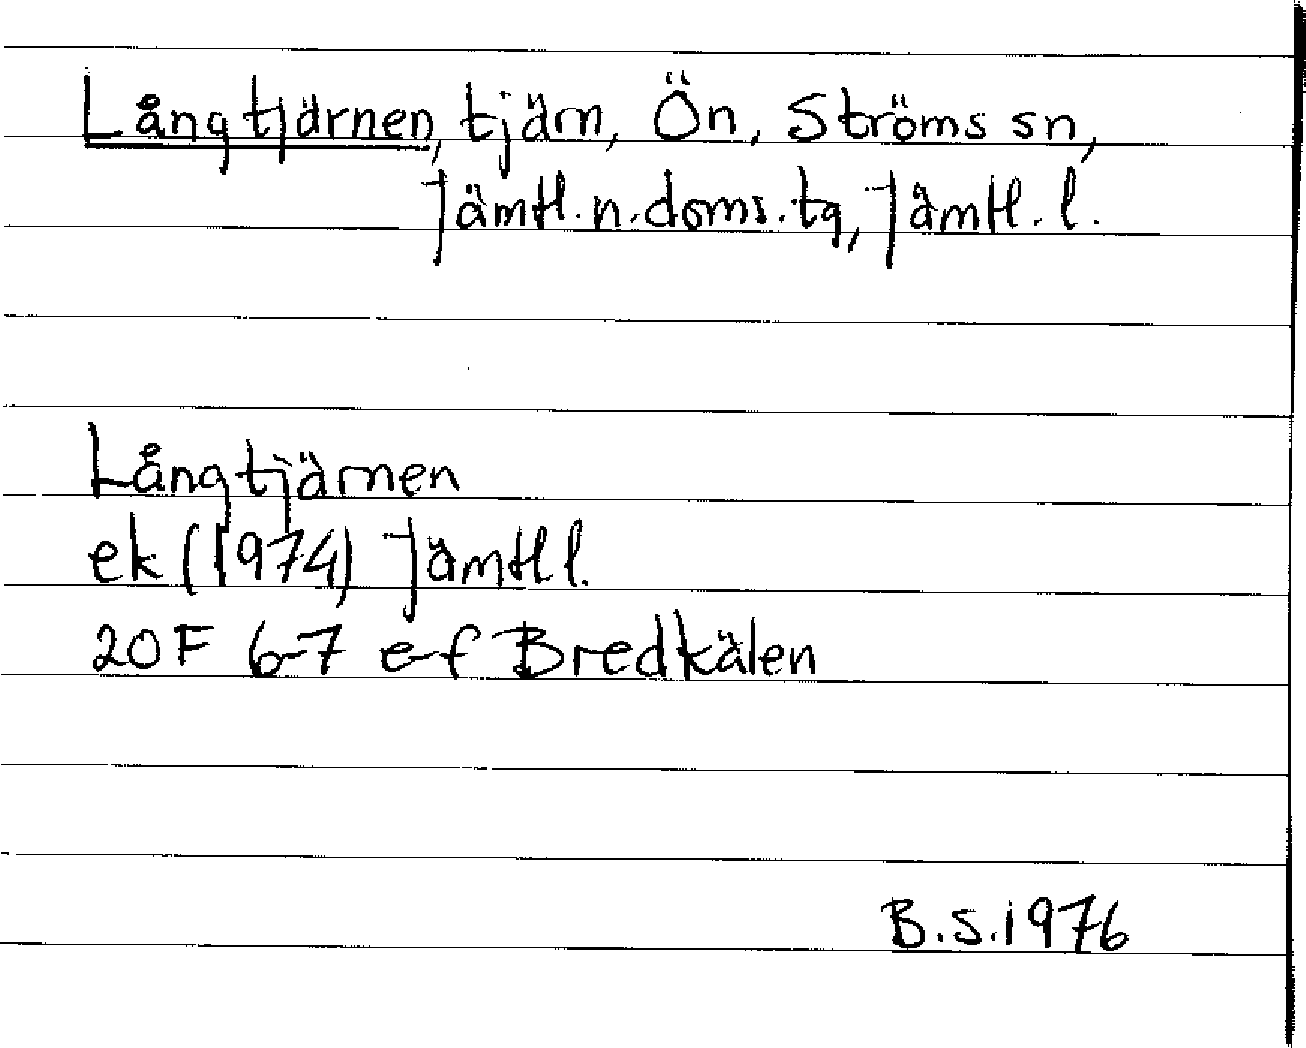 Långtjärnen, tjärn, Ön, Ströms sn,
Jämtl. n. doms. tg, Jämtl. l.
Långtjärnen
ek (1974) Jämtl l.
20 F 6-7 e-f Bredkälen
B.S. 1976